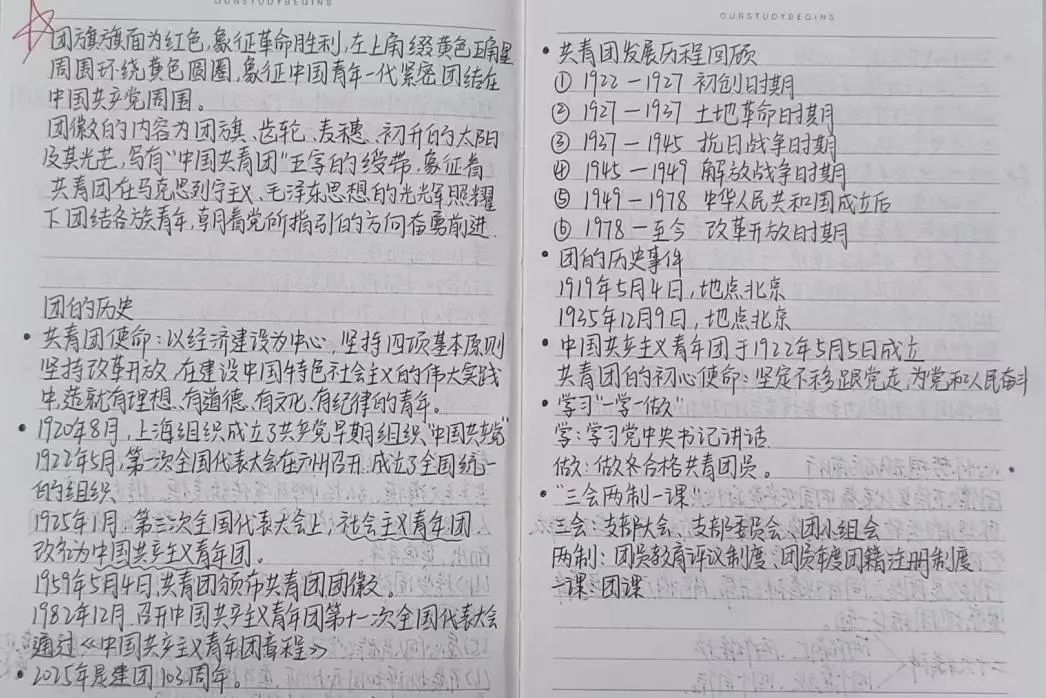 OURSTUDYBEGINS
团旗旗面为红色,象征革命胜利,左上角缀黄色五角星
周围环绕黄色圆圈,象征中国青年一代紧密团结在
中国共产党周围。
团徽的内容为团旗、齿轮、麦穗、初升的太阳
及其光芒,写有“中国共青团”五字的绶带,象征着
共青团在马克思列宁主义、毛泽东思想的光辉照耀
下团结各族青年,朝着党所指引的方向奋勇前进.
团的历史
• 共青团使命:以经济建设为中心,坚持四项基本原则
坚持改革开放,在建设中国特色社会主义的伟大实践
中,造就有理想、有道德、有文化、有纪律的青年。
• 1920年8月,上海组织成立了共产党早期组织“中国共产党”
1922年5月,第一次全国代表大会在广州召开,成立了全国统一
的组织.
1925年1月,第三次全国代表大会上,社会主义青年团
改名为中国共产主义青年团.
1959年5月4日,共青团颁布共青团团徽.
1982年12月,召开中国共产主义青年团第十一次全国代表大会
通过《中国共产主义青年团章程》
• 2025年是建团103周年。
OURSTUDYBEGINS
• 共青团发展历程回顾
① 1922—1927 初创时期
② 1927—1937 土地革命时期
③ 1937—1945 抗日战争时期
④ 1945—1949 解放战争时期
⑤ 1949—1978 中华人民共和国成立后
⑥ 1978—至今 改革开放时期
• 团的历史事件
1919年5月4日,地点北京
1935年12月9日,地点北京
• 中国共产主义青年团于1922年5月5日成立
共青团的初心使命:坚定不移跟党走,为党和人民奋斗
• 学习“一学一做”
学:学习党中央书记讲话.
做:做名合格共青团员。
• “三会两制一课”
三会:支部大会、支部委员会、团小组会
两制:团员教育评议制度、团员年度团籍注册制度,
一课:团课